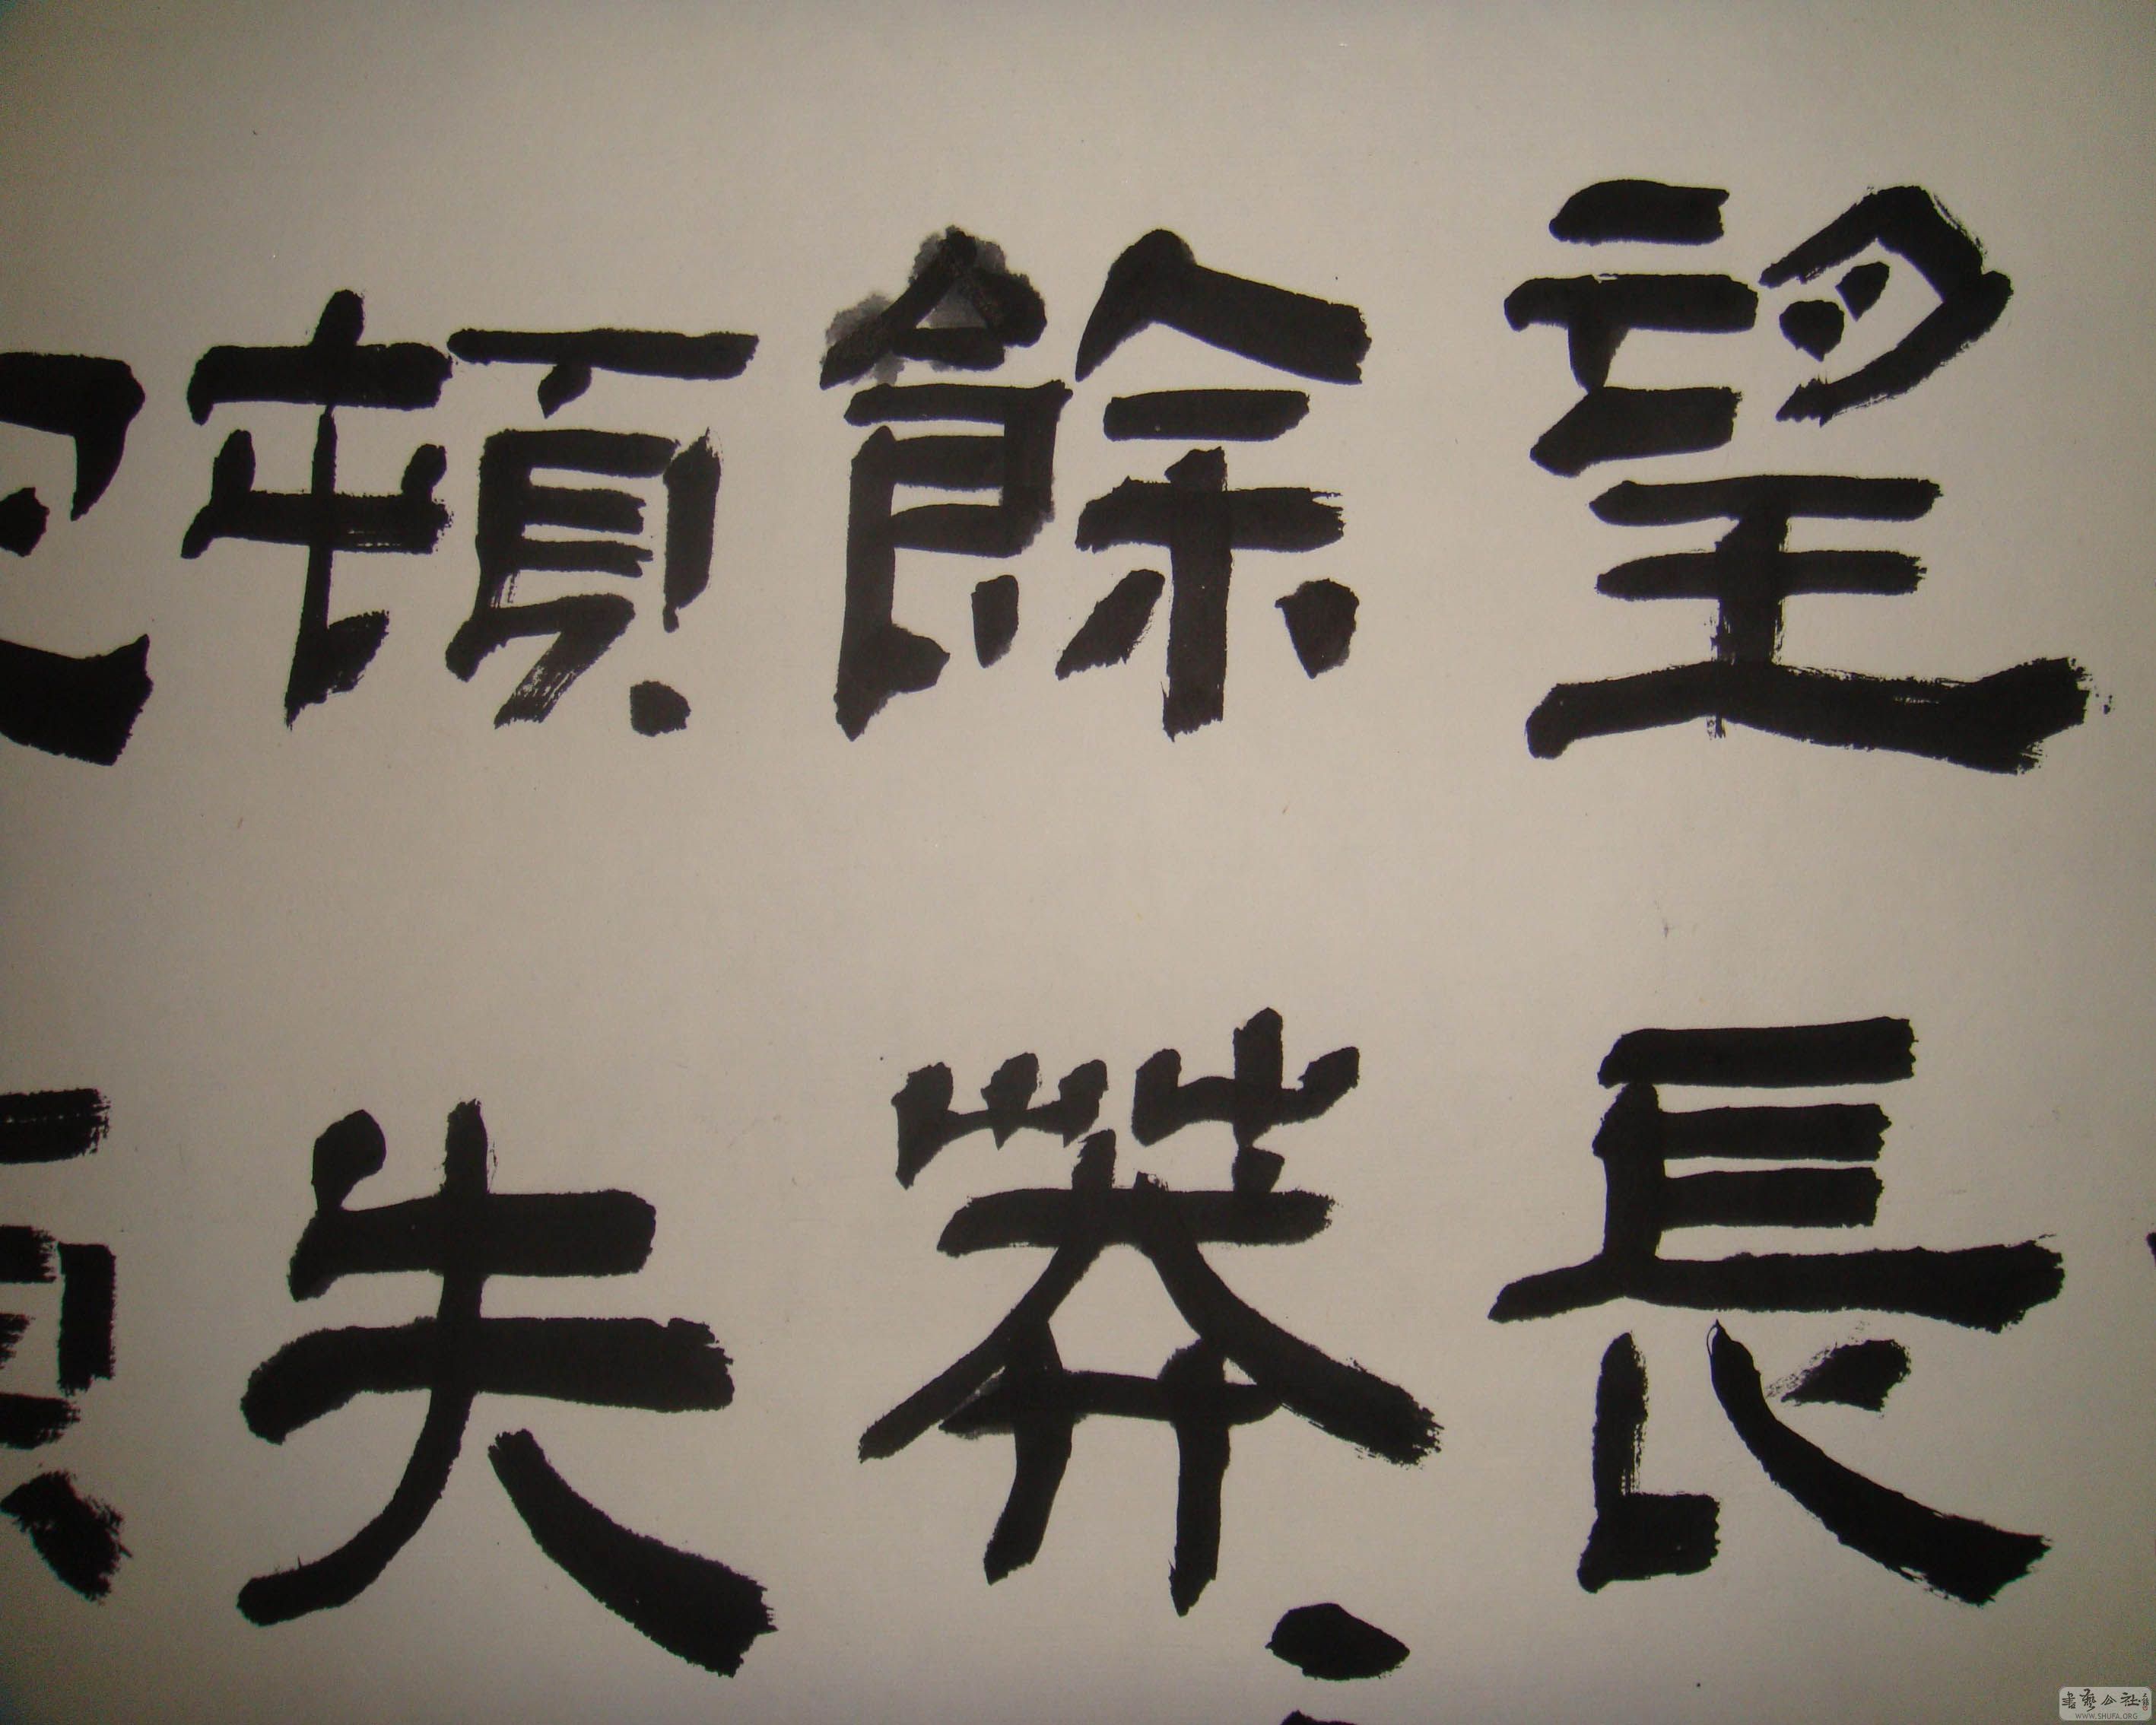 望長
餘莽
頓失
書藝公社
WWW.SHUFA.ORG